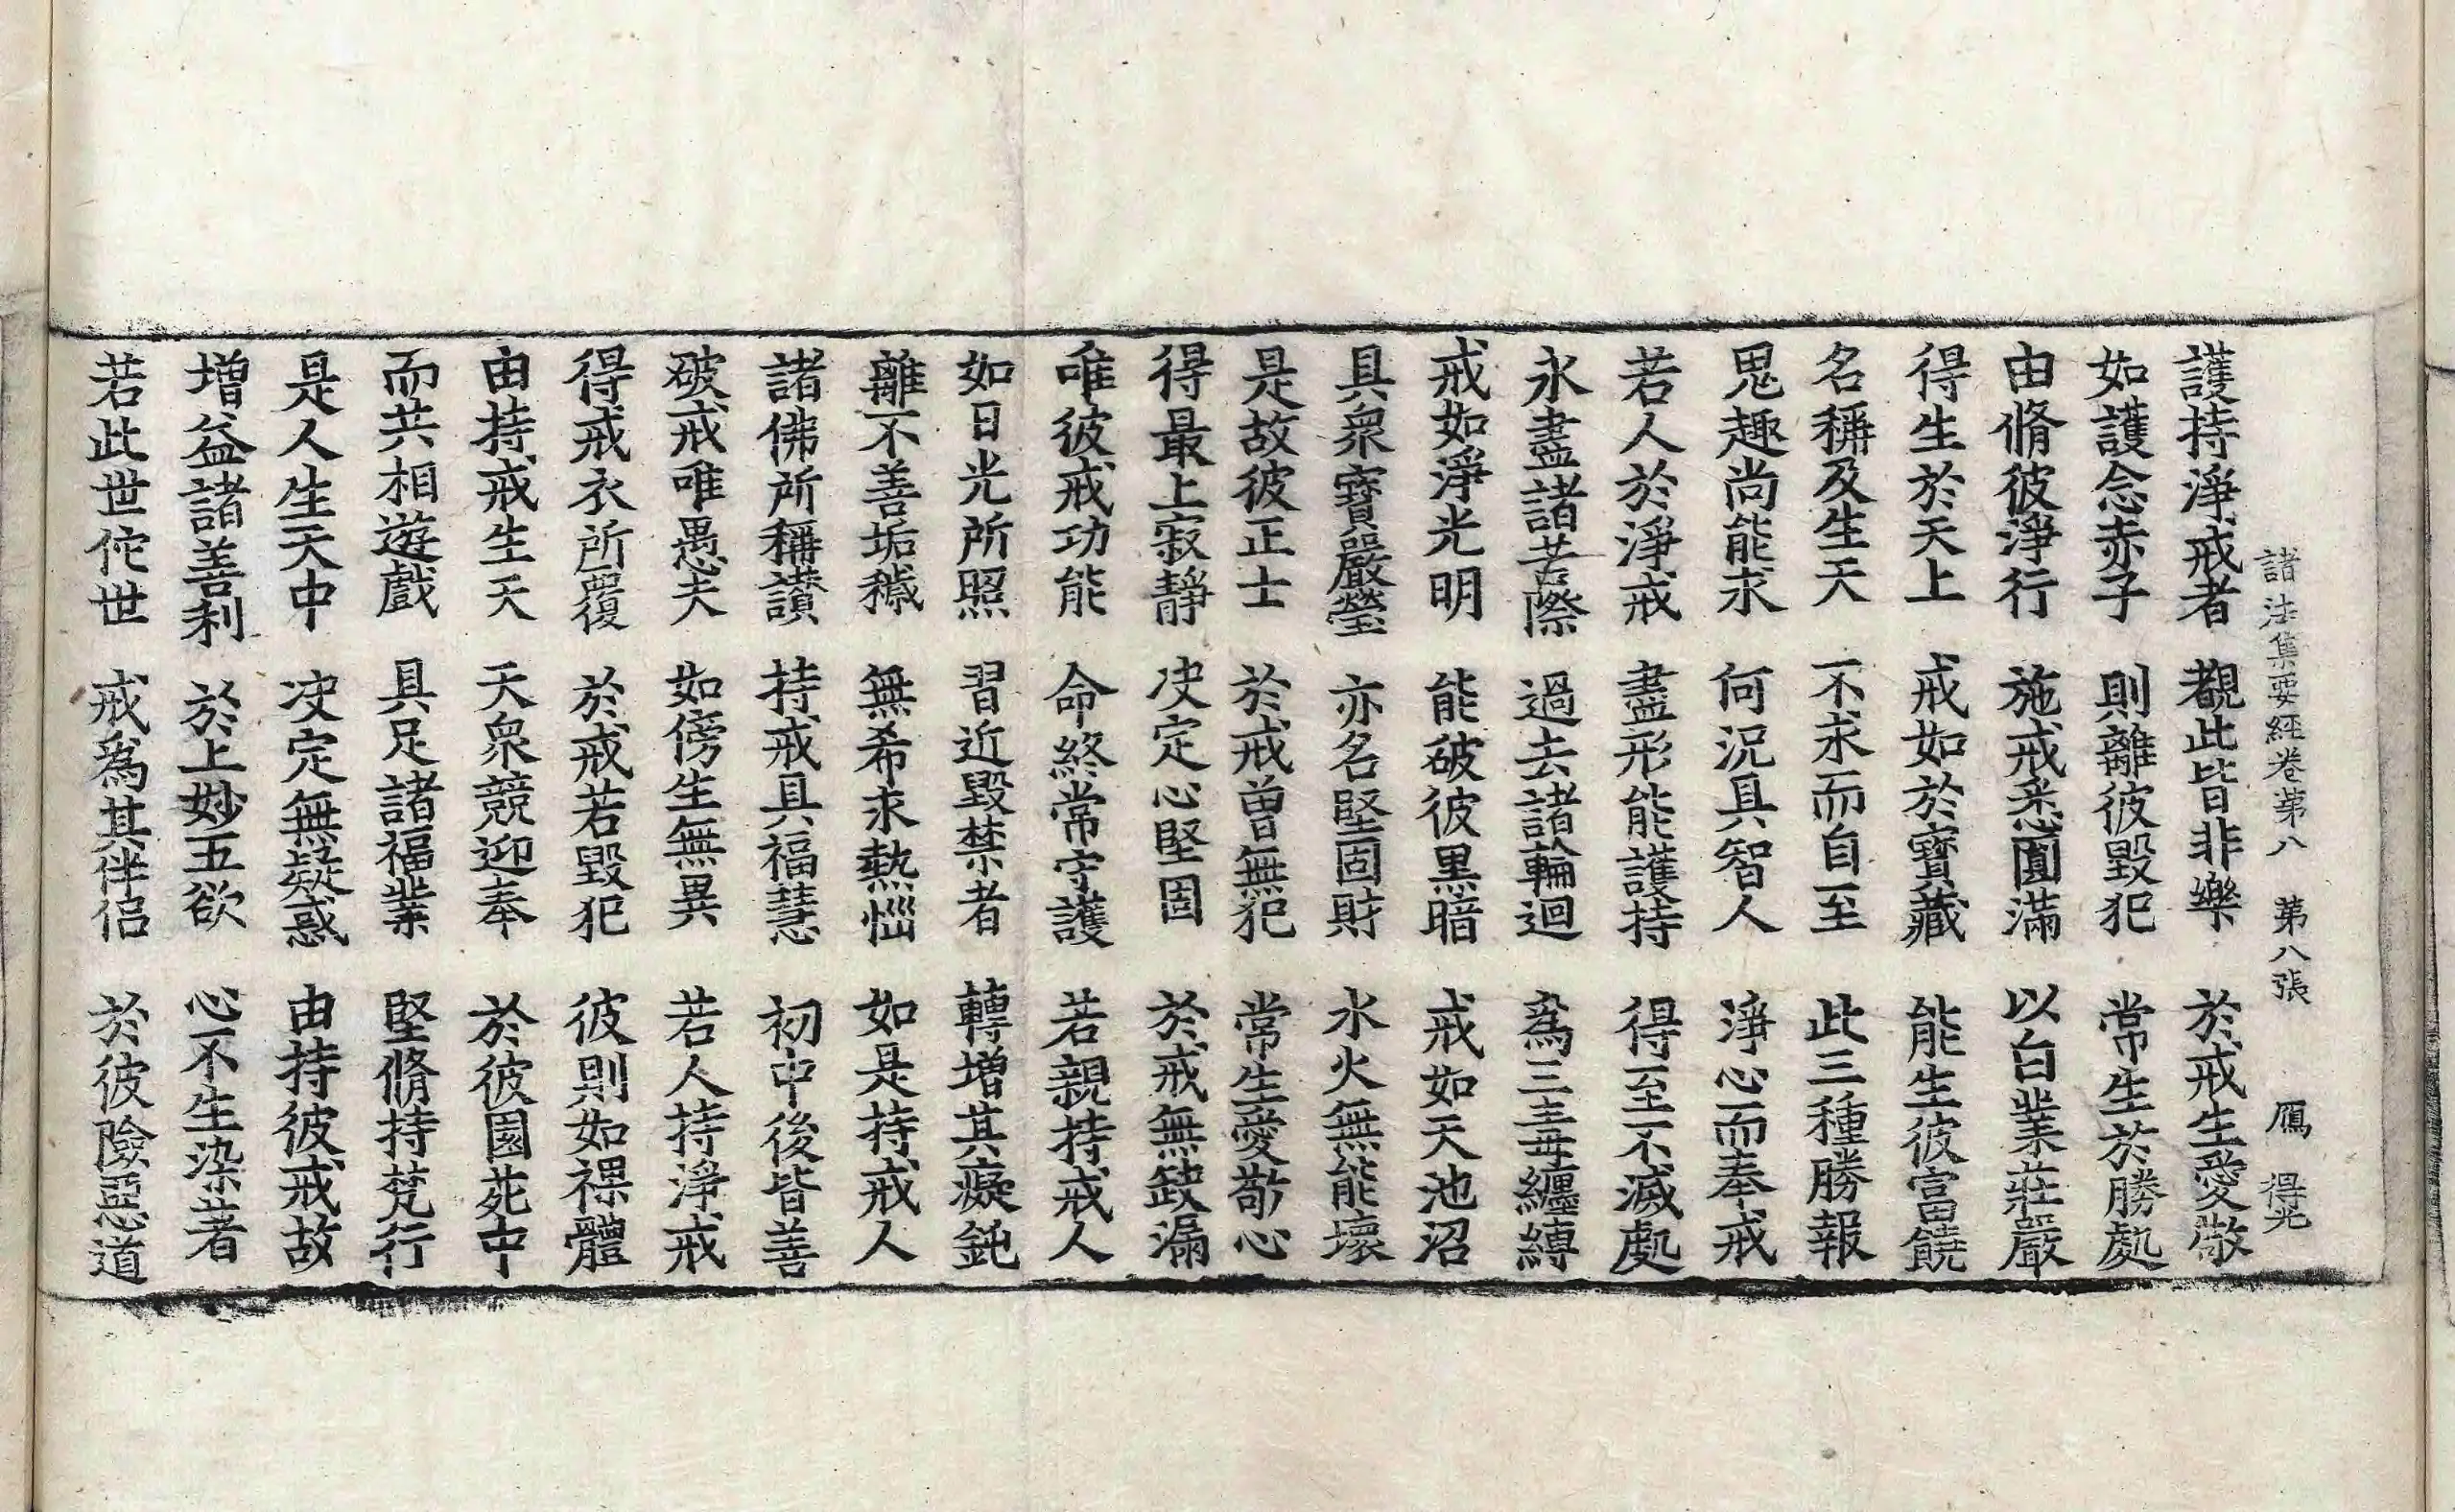 諸法集要經卷第八　第八張　鴈　得光
護持淨戒者　觀此皆非樂　於戒生愛敬
如護念赤子　則離彼毀犯　常生於勝處
由脩彼淨行　施戒悉圓滿　以白業莊嚴
得生於天上　戒如於寶藏　能生彼富饒
名稱及生天　不求而自至　此三種勝報
鬼趣尚能求　何況具智人　淨心而奉戒
若人於淨戒　盡形能護持　得至不滅處
永盡諸苦際　過去諸輪迴　為三毒纏縛
戒如淨光明　能破彼黑暗　戒如天池沼
具衆寶嚴瑩　亦名堅固財　水火無能壞
是故彼正士　於戒曾無犯　常生愛敬心
得最上寂靜　决定心堅固　於戒無缺漏
唯彼戒功能　命終常守護　若親持戒人
如日光所照　習近毀禁者　轉增其癡鈍
離不善垢穢　無希求熱惱　如是持戒人
諸佛所稱讃　持戒具福慧　初中後皆善
破戒唯愚夫　如傍生無異　若人持淨戒
得戒衣所覆　於戒若毀犯　彼則如裸體
由持戒生天　天衆競迎奉　於彼園苑中
而共相遊戲　具足諸福業　堅脩持梵行
是人生天中　决定無疑惑　由持彼戒故
增益諸善利　於上妙五欲　心不生染著
若此世佗世　戒為其伴侶　於彼險惡道